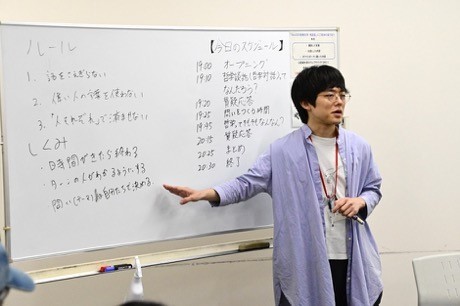 ルール
1. 話をさえぎらない
2. 偉い人の言葉を使わない
3. "人それぞれ"で済ませない
しくみ
・時間がきたら終わる
・の人がある
問い(テーマ)は自分たちで決める。
【今日のスケジュール】
19:00 オープニング
19:10 哲学談話(哲学対話)って
なんだろう?
19:20 質疑応答
19:25 問いをつくる時間
19:45 哲学ってそもそもなんなん?
20:15 質疑応答
20:25 まとめ
20:30 終了